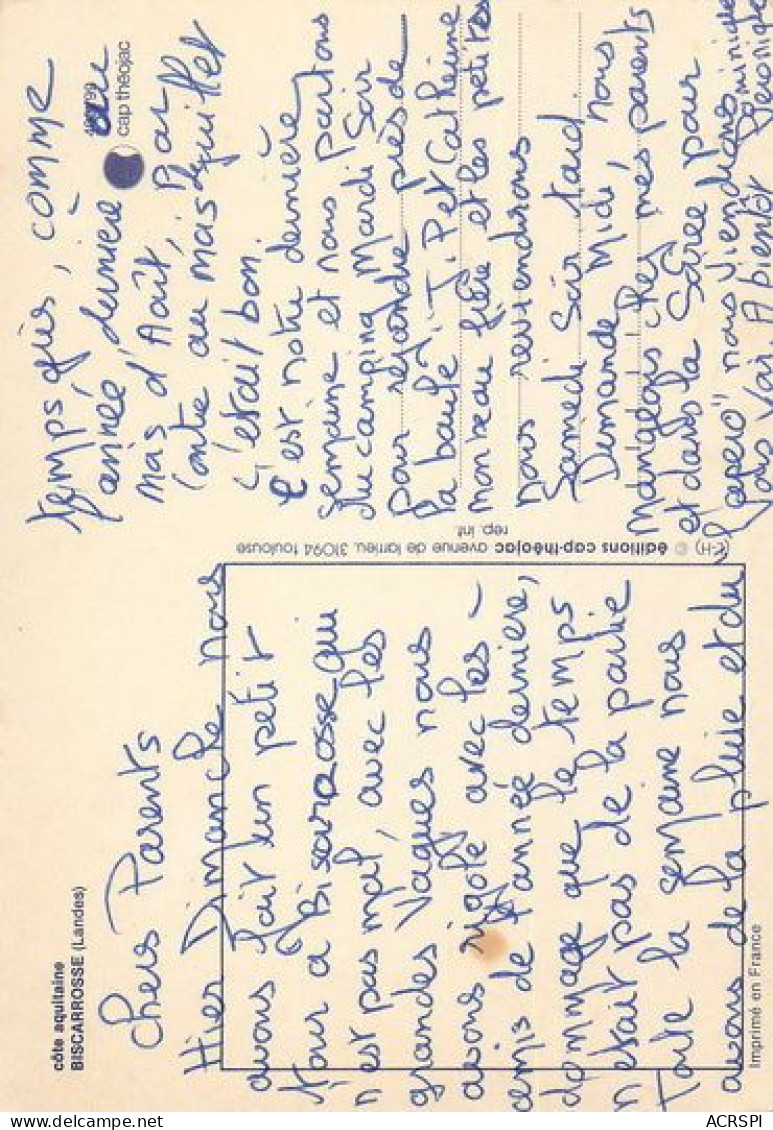 côte aquitaine
BISCARROSSE (Landes)
Chers Parents
Hier Dimanche nous
avons fait un petit
tour a Biscarosse qui
n'est pas mal, avec les
grandes vagues nous
avons rigolé avec les -
amis de l'année dernière,
dommage que le temps
n'etait pas de la partie
Toute la semaine nous
avons de la pluie et du
Imprimé en France
(CH) © éditions cap-théojac avenue de larrieu. 31094 toulouse
rep. int.
cap théojac
temps gris, comme
année dernière au
mas d'Août, Par
contre au mais de juillet
c'etait bon.
C'est notre dernière
semaine et nous partons
du camping Mardi Soir
pour rejoindre près de
la baule, J.P et Catherine
mon beau frère et les petites
nous reviendrons
Samedi Soir tard.
Demande Midi, nous
mangeois chez mes parents
et dans la Soirée pour
l'apero" nous viendrons
Vous Voir. A bientôt Dominique
Veronique
ACRSPI